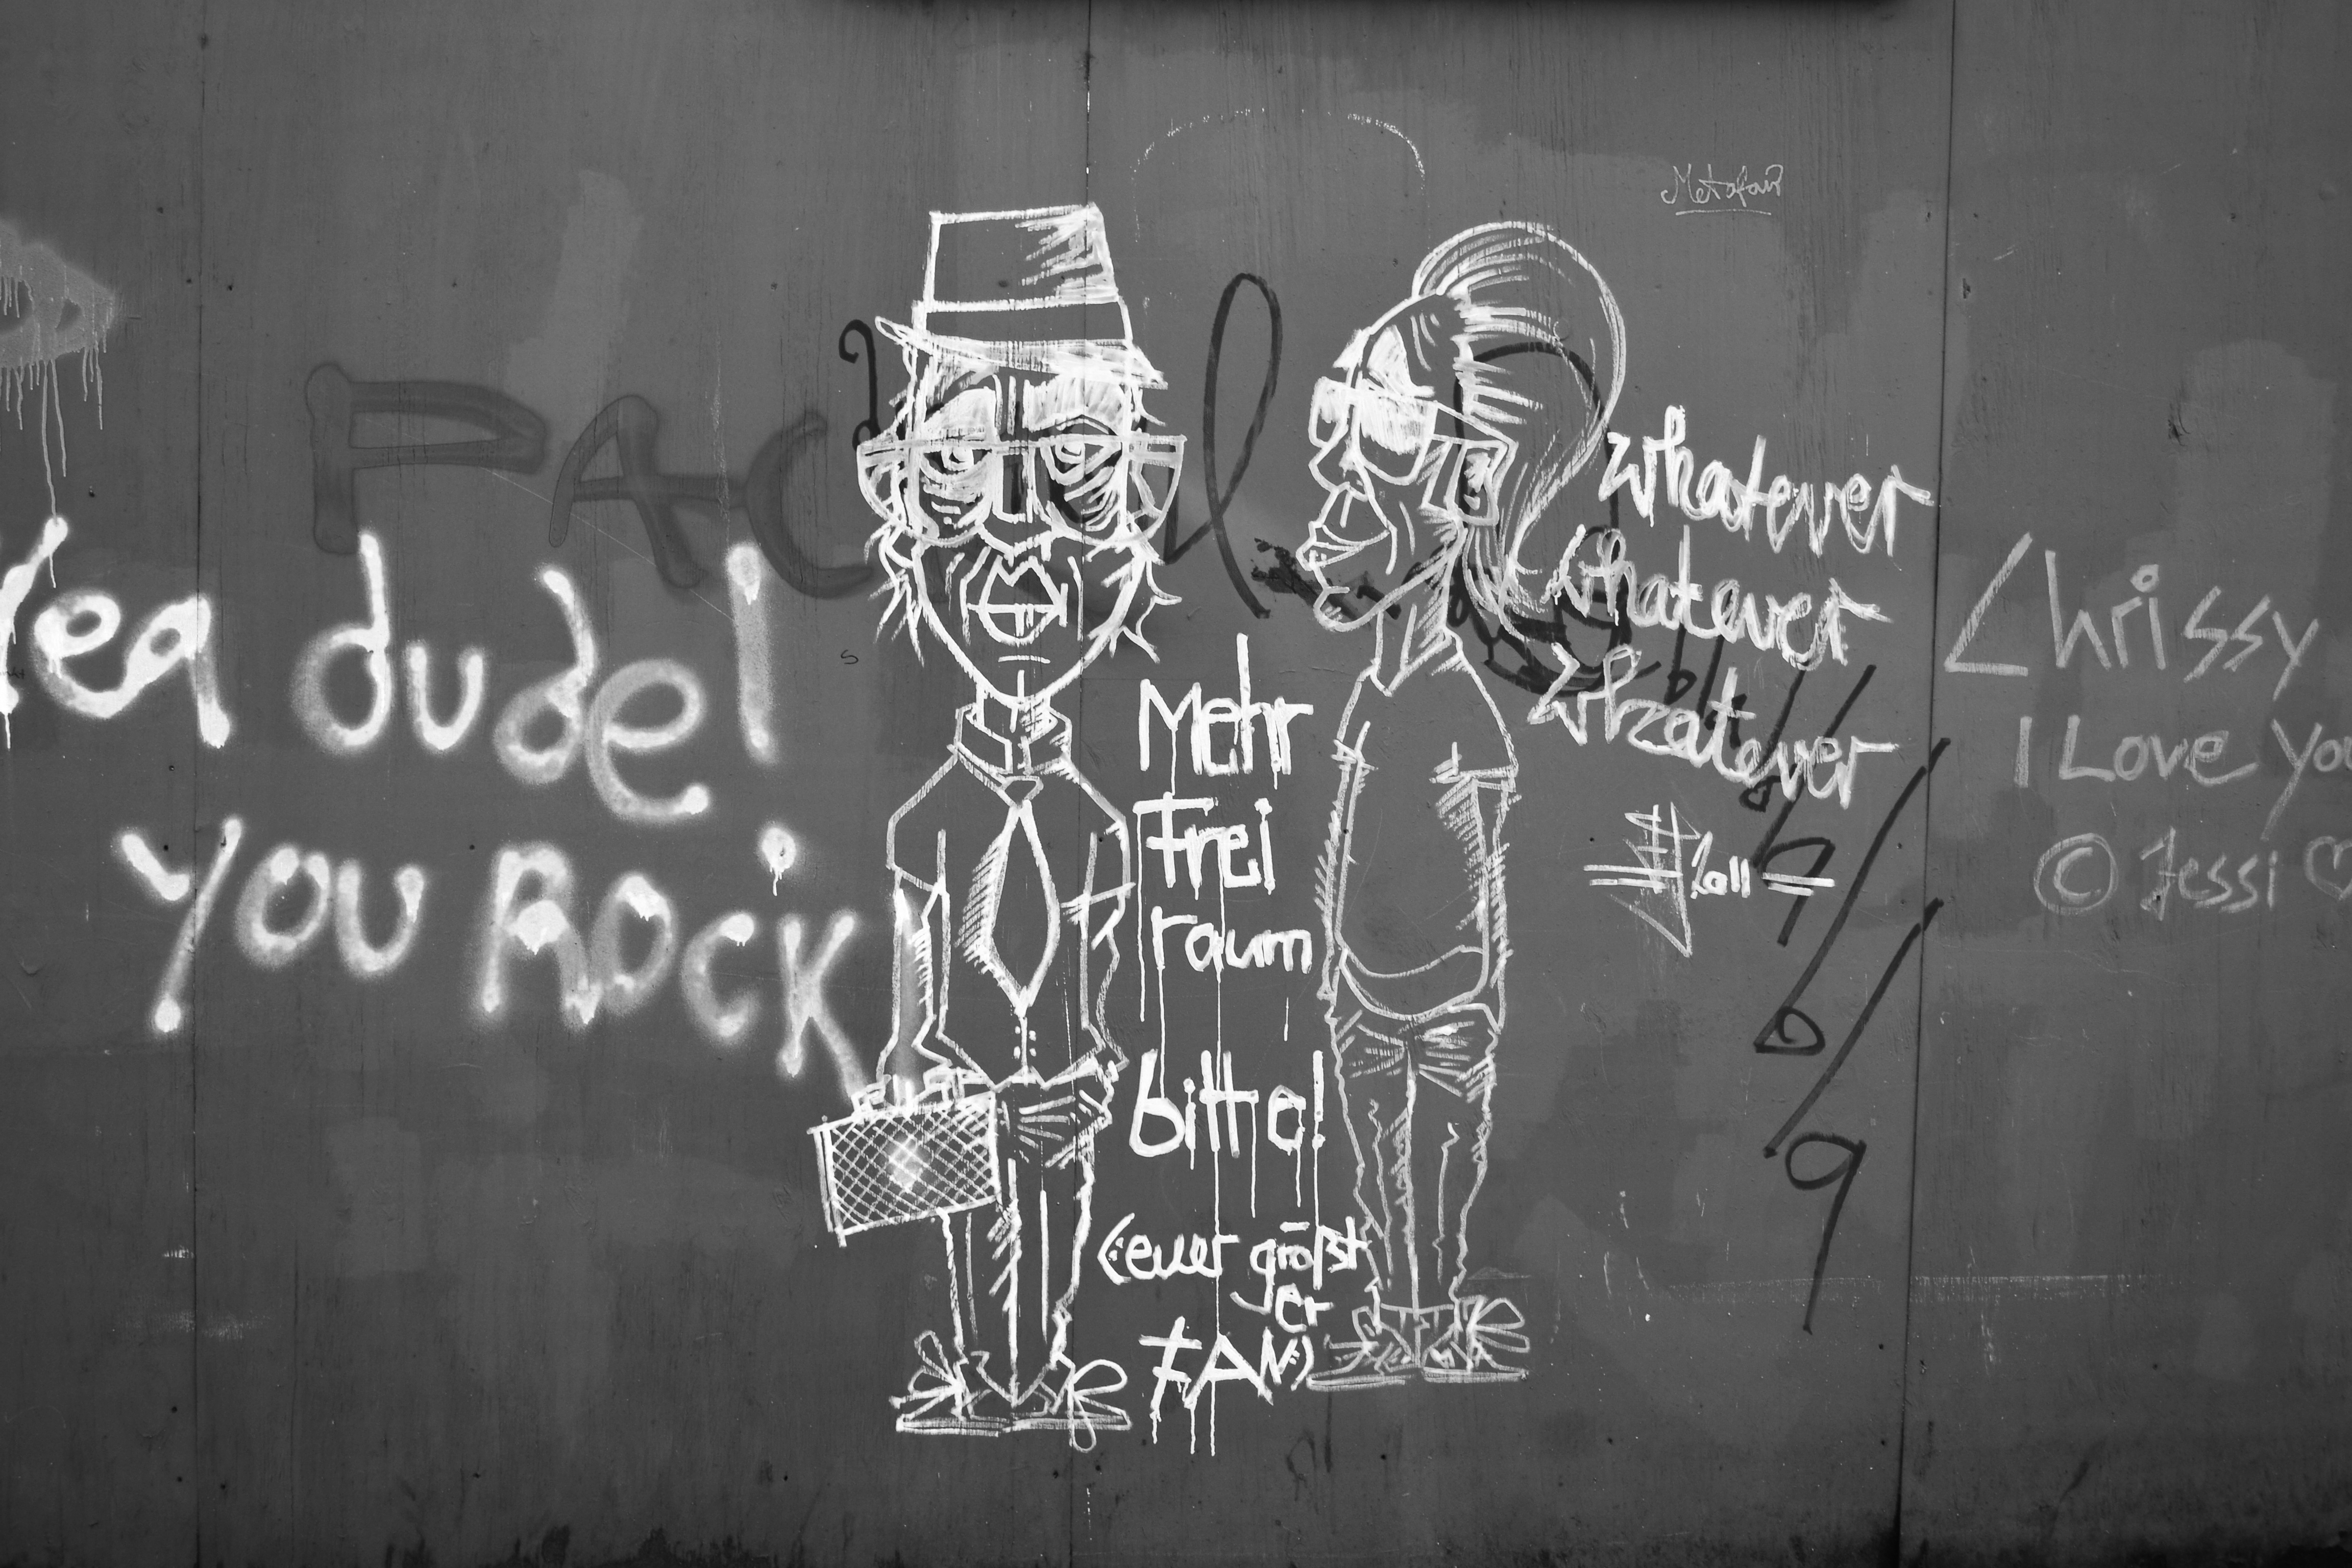 Yea dude!
YOU ROCK
Mehr
Frei
raum
bitte!
(euer größt
er
FAN)
whatever
whatever
whatever
2011
Chrissy
I Love you
© Jessi ♡